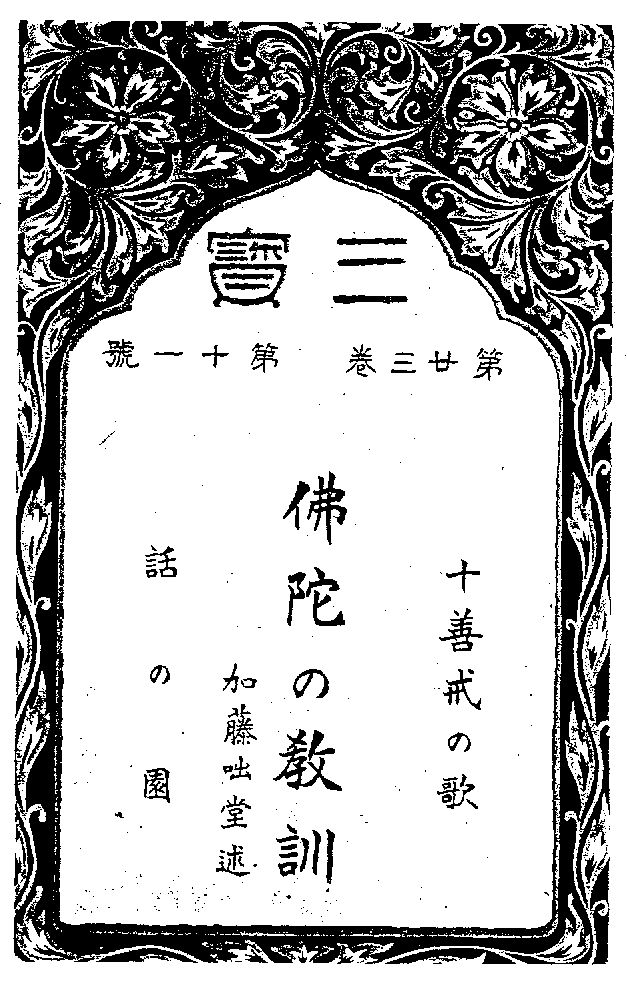 三寶
第廿三卷 第十一號
十善戒の歌
佛陀の教訓
加藤咄堂述
話の園